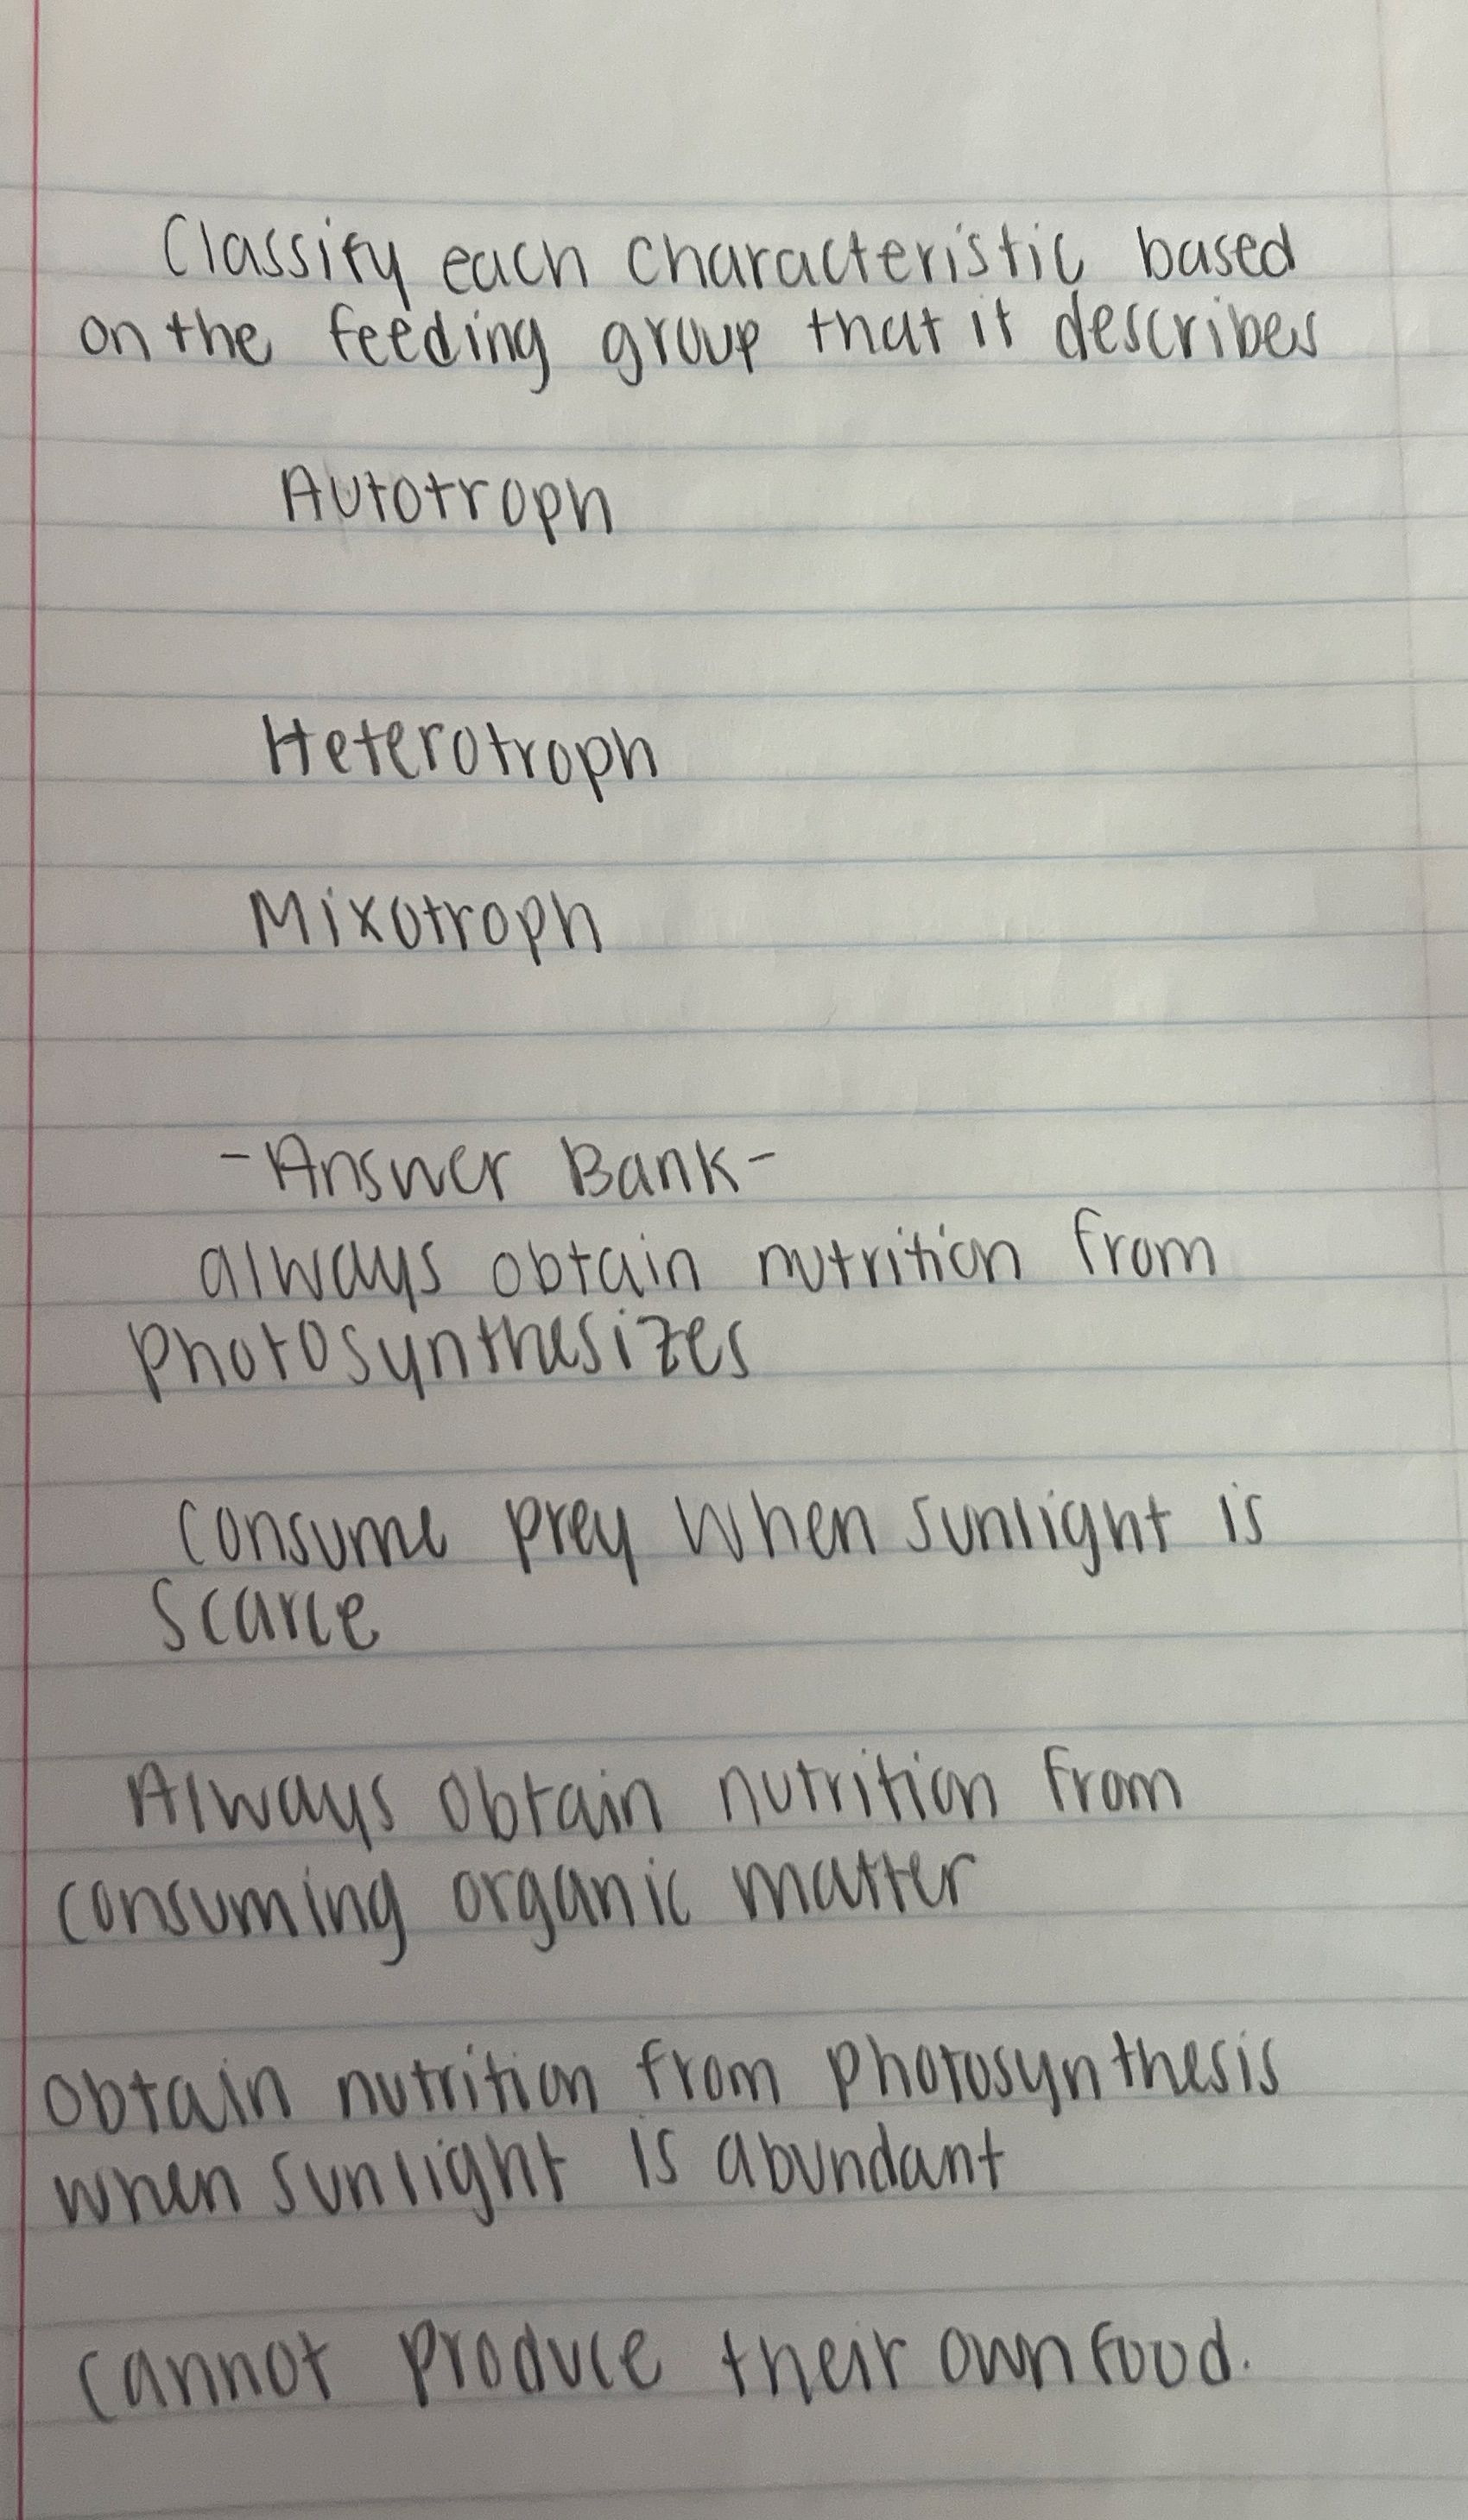 Classify each characteristic based
on the feeding group that it describes
Autotroph
Heterotroph
Mixotroph
-Answer Bank-
always obtain nutrition from
photosynthesizes
consume prey when sunlight is
scarce
Always obtain nutrition from
consuming organic matter
obtain nutrition from photosynthesis
when sunlight is abundant
cannot produce their own food.